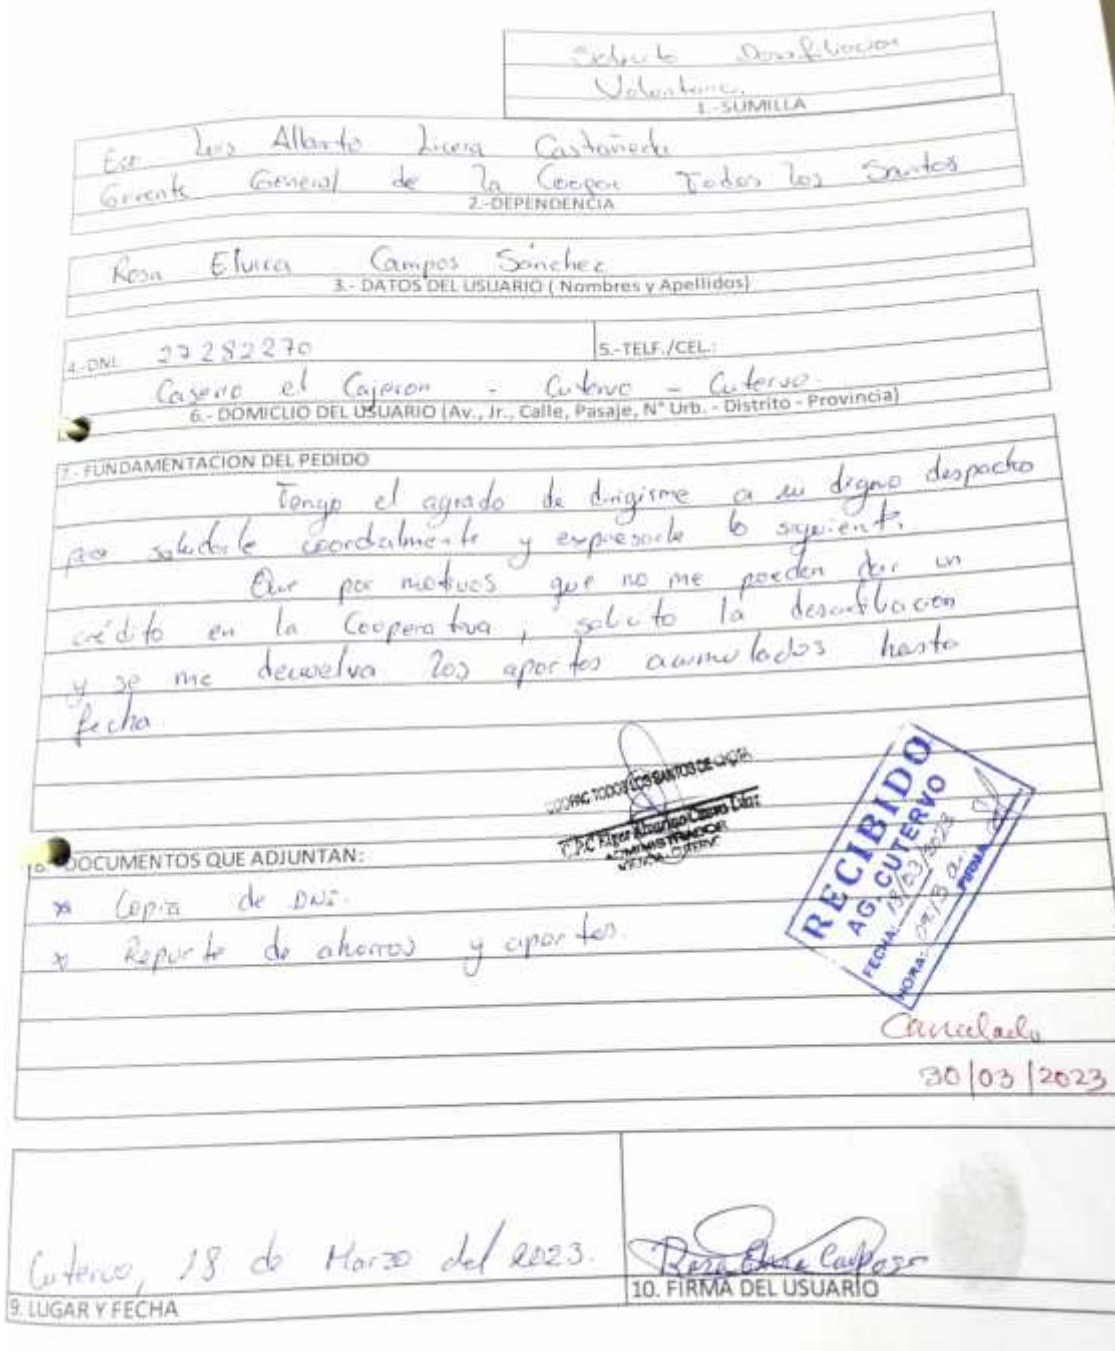 Solicito Desafiliacion
Voluntaria
1.-SUMILLA
Eco Luis Alberto Licera Castañeda
Gerente General de la Coopac Todos los Santos
2.-DEPENDENCIA
Rosa Elvira Campos Sánchez
3.- DATOS DEL USUARIO ( Nombres y Apellidos)
4.-DNI. 27282270
5.-TELF./CEL.:
Caserio el Cajeron - Cutervo - Cutervo.
6.- DOMICLIO DEL USUARIO (Av., Jr., Calle, Pasaje, N° Urb. - Distrito - Provincia)
7.- FUNDAMENTACION DEL PEDIDO
Tengo el agrado de dirigirme a su digno despacho
para saludarle coordialmente y expresarle lo siguiente.
Que por motivos que no me pueden dar un
crédito en la Cooperativa, solicito la desafiliacion
y se me devuelva los aportes acumulados hasta
fecha.
COOPAC TODOS LOS SANTOS DE CHOTA
ADMINISTRADOR
AGENCIA - CUTERVO
RECIBIDO
AG. CUTERVO
FECHA: 18/03/2023
HORA: 09:13 a. FIRMA
8.- DOCUMENTOS QUE ADJUNTAN:
* Copia de DNI.
* Reporte de ahorros y aportes.
Cancelado
30/03/2023
Cutervo, 18 de Marzo del 2023.
9. LUGAR Y FECHA
Rosa Elvira Campos
10. FIRMA DEL USUARIO